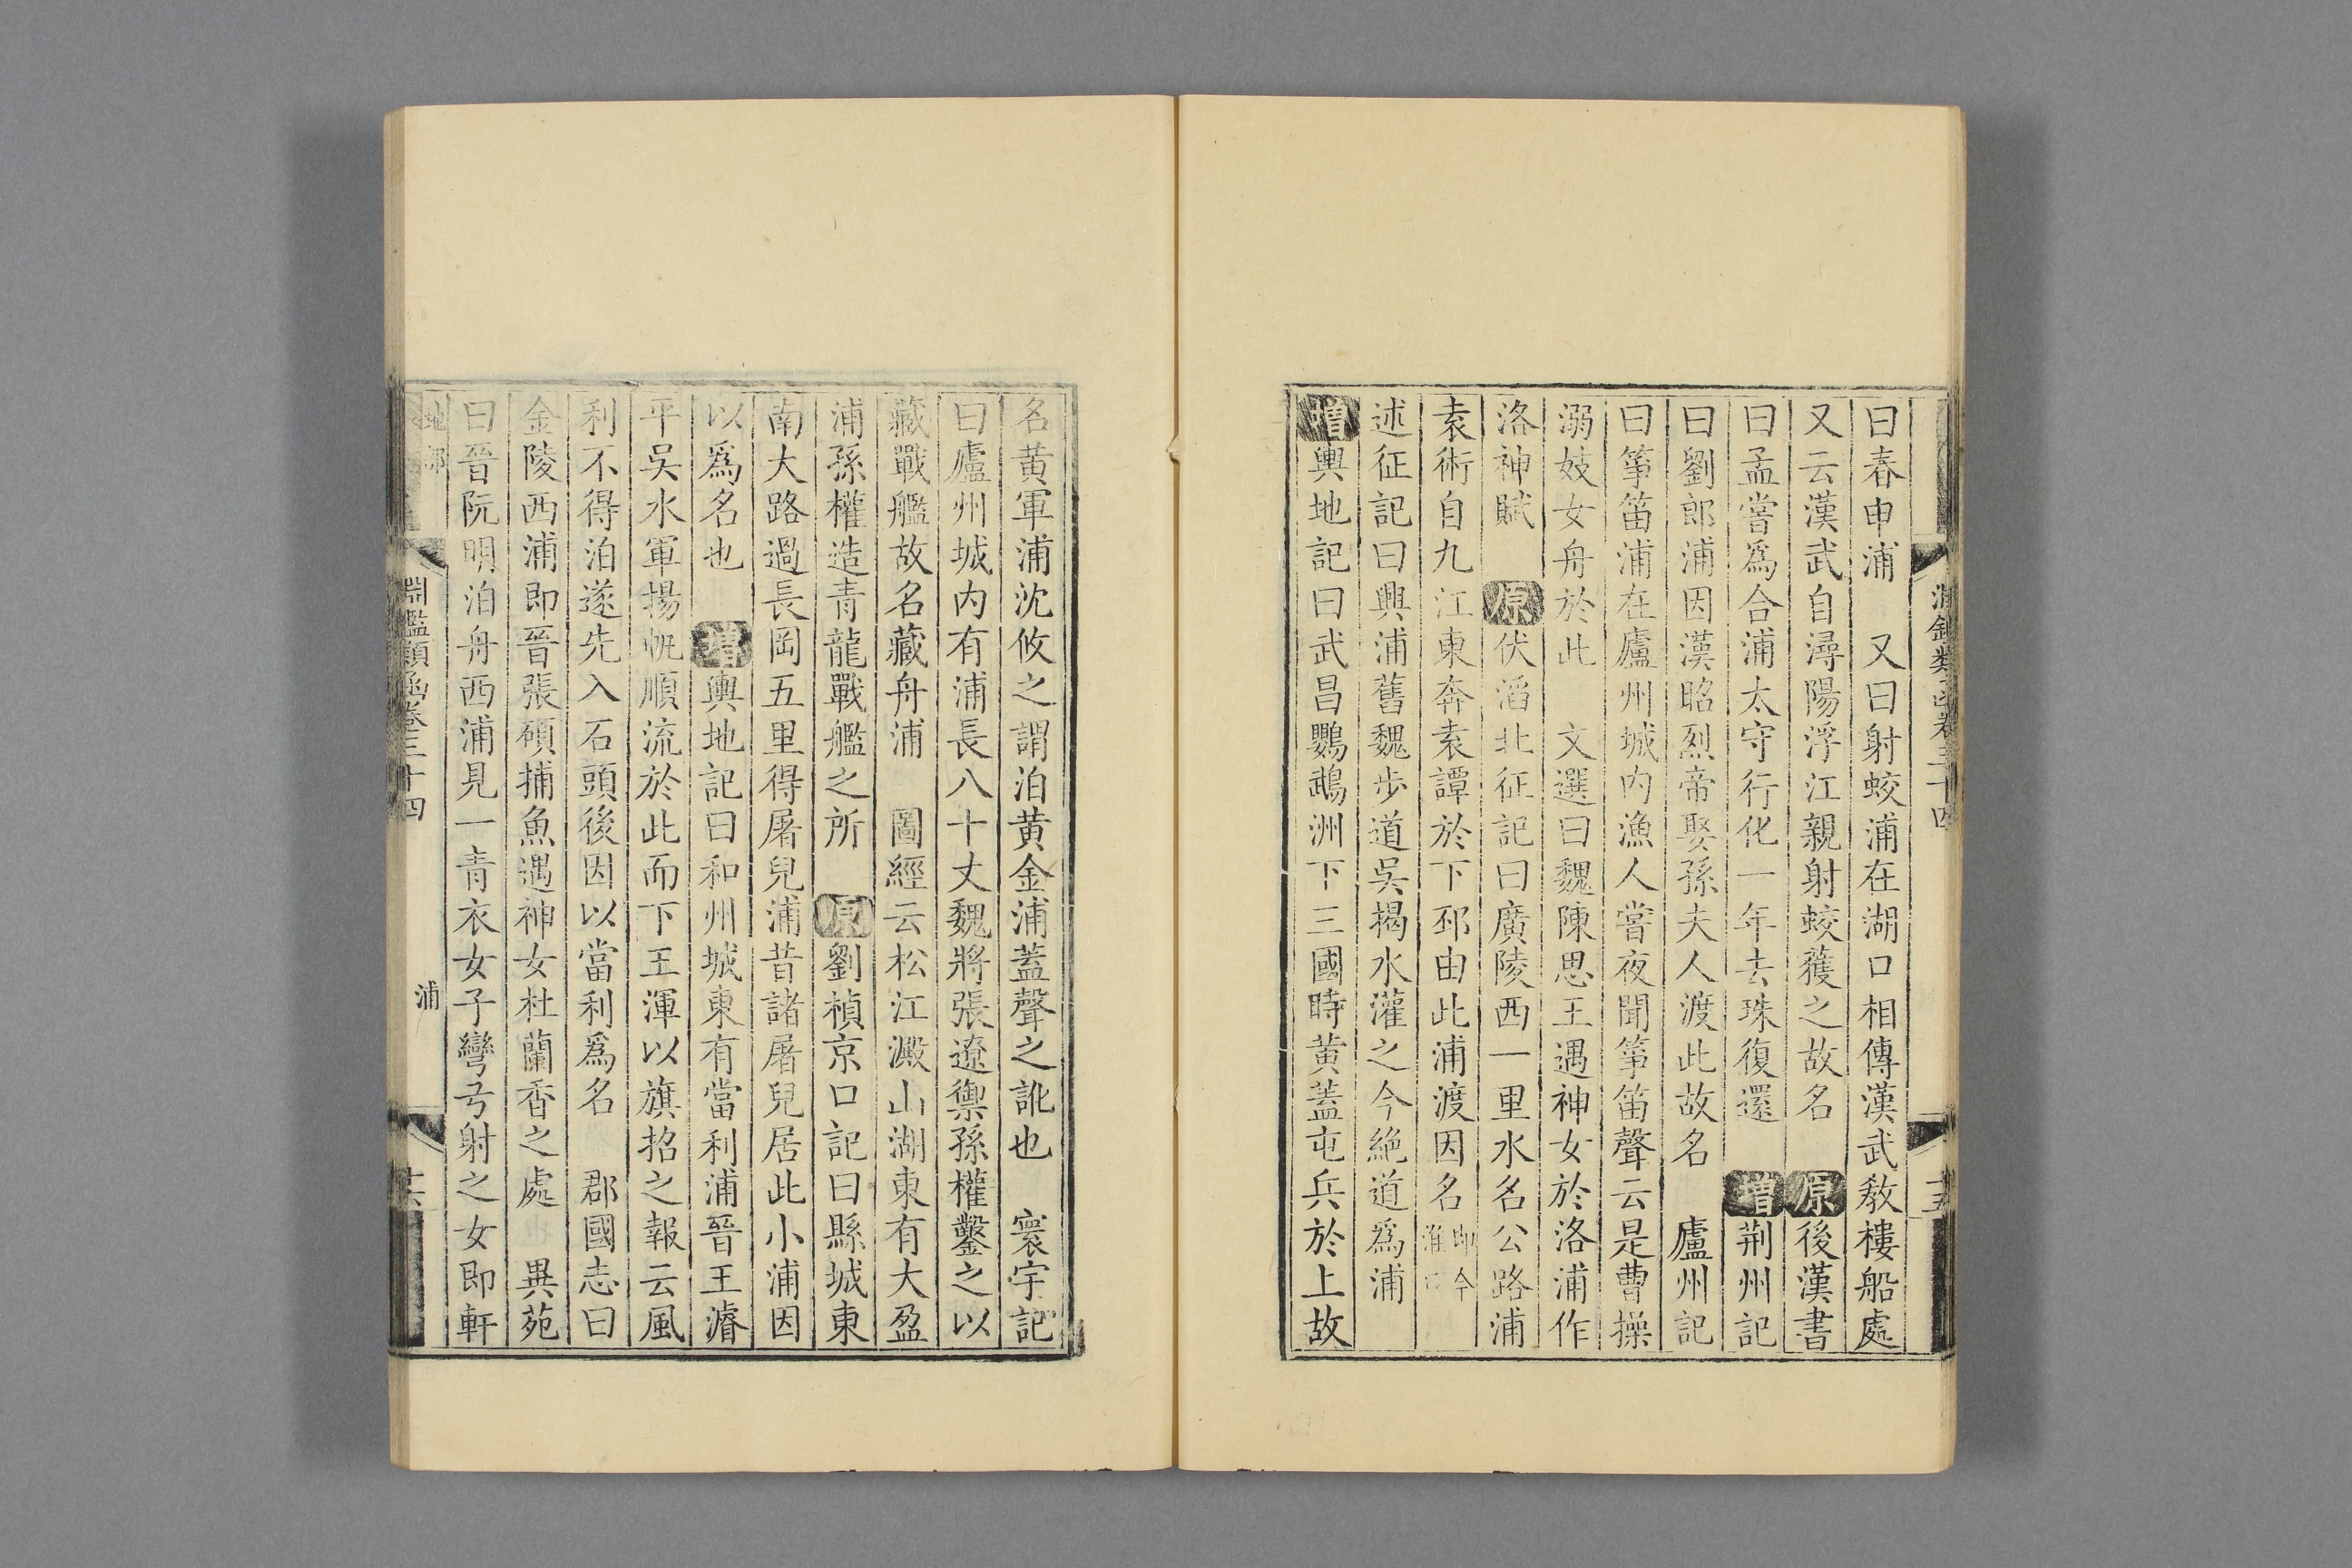 曰春申浦　又曰射蛟浦在湖口相傳漢武教樓船處
又云漢武自潯陽浮江親射蛟獲之故名　原後漢書
曰孟嘗爲合浦太守行化一年去珠復還　增荆州記
曰劉郎浦因漢昭烈帝娶孫夫人渡此故名　盧州記
曰筝笛浦在廬州城内漁人嘗夜聞筝笛聲云是曹操
溺妓女舟於此　文選曰魏陳思王遇神女於洛浦作
洛神賦　原伏滔北征記曰廣陵西一里水名公路浦
袁術自九江東奔袁譚於下邳由此浦渡因名即今淮口
述征記曰興浦舊魏步道吳揭水灌之今絶道爲浦
增輿地記曰武昌鸚鵡洲下三國時黄蓋屯兵於上故
名黄軍浦沈攸之謂泊黄金浦蓋聲之訛也　寰宇記
曰廬州城内有浦長八十丈魏將張遼禦孫權鑿之以
藏戰艦故名藏舟浦　圖經云松江澱山湖東有大盈
浦孫權造青龍戰艦之所　原劉楨京口記曰縣城東
南大路過長岡五里得屠兒浦昔諸屠兒居此小浦因
以爲名也　增輿地記曰和州城東有當利浦晉王濬
平吳水軍揚帆順流於此而下王渾以旗招之報云風
利不得泊遂先入石頭後因以當利爲名　郡國志曰
金陵西浦即晉張碩捕魚遇神女杜蘭香之處　異苑
曰晉阮明泊舟西浦見一青衣女子彎弓射之女即軒
地部
淵鑑類函卷三十四
浦
十六